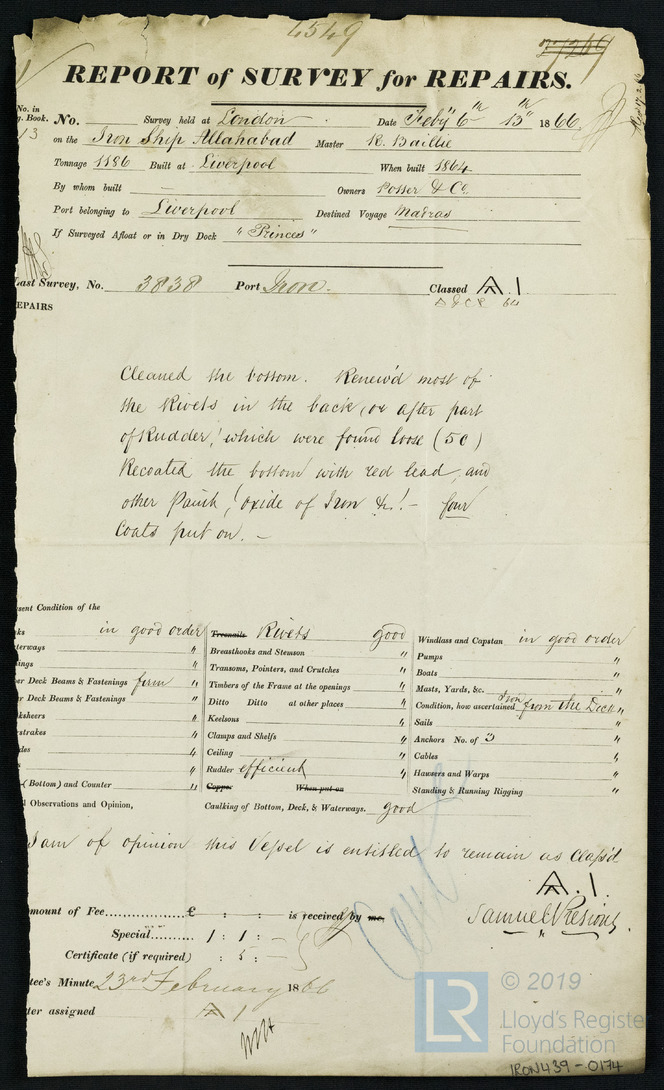 4549
REPORT of SURVEY for REPAIRS.
No. in
g. Book. No. Survey held at London Date Feby 6th 13th 1866
13 on the Iron Ship Allahabad Master R. Baillie
Tonnage 1186 Built at Liverpool When built 1864
By whom built — Owners Potter & Co.
Port belonging to Liverpool Destined Voyage Madras
If Surveyed Afloat or in Dry Dock "Princes"
ast Survey, No. 3838 Port Iron. Classed A.1
EPAIRS
Cleaned the bottom. Renew'd most of
the Rivets in the back, or after part
of Rudder, which were found loose (50)
Recoated the bottom with red lead, and
other Paint, oxide of Iron &c! - four
Coats put on. -
sent Condition of the
ks in good order " Treenails Rivets good Windlass and Capstan in good order
terways " Breasthooks and Stemson " Pumps "
ings " Transoms, Pointers, and Crutches " Boats "
er Deck Beams & Fastenings firm " Timbers of the Frame at the openings " Masts, Yards, &c. Iron "
r Deck Beams & Fastenings " Ditto Ditto at other places " Condition, how ascertained from the Deck "
ksheers " Keelsons " Sails "
strakes " Clamps and Shelfs " Anchors No. of 3 "
des " Ceiling " Cables "
Rudder efficient " Hawsers and Warps "
(Bottom) and Counter " Copper When put on Standing & Running Rigging "
l Observations and Opinion, Caulking of Bottom, Deck, & Waterways. good
I am of opinion this Vessel is entitled to remain as Class'd
A.1.
mount of Fee................£ : : is received by me,
Special......... 1 : 1 : -
Certificate (if required) : 5 : -
tee's Minute 23rd February 1866
ter assigned A 1
© 2019
LR Lloyd's Register
Foundation
IRON439-0174